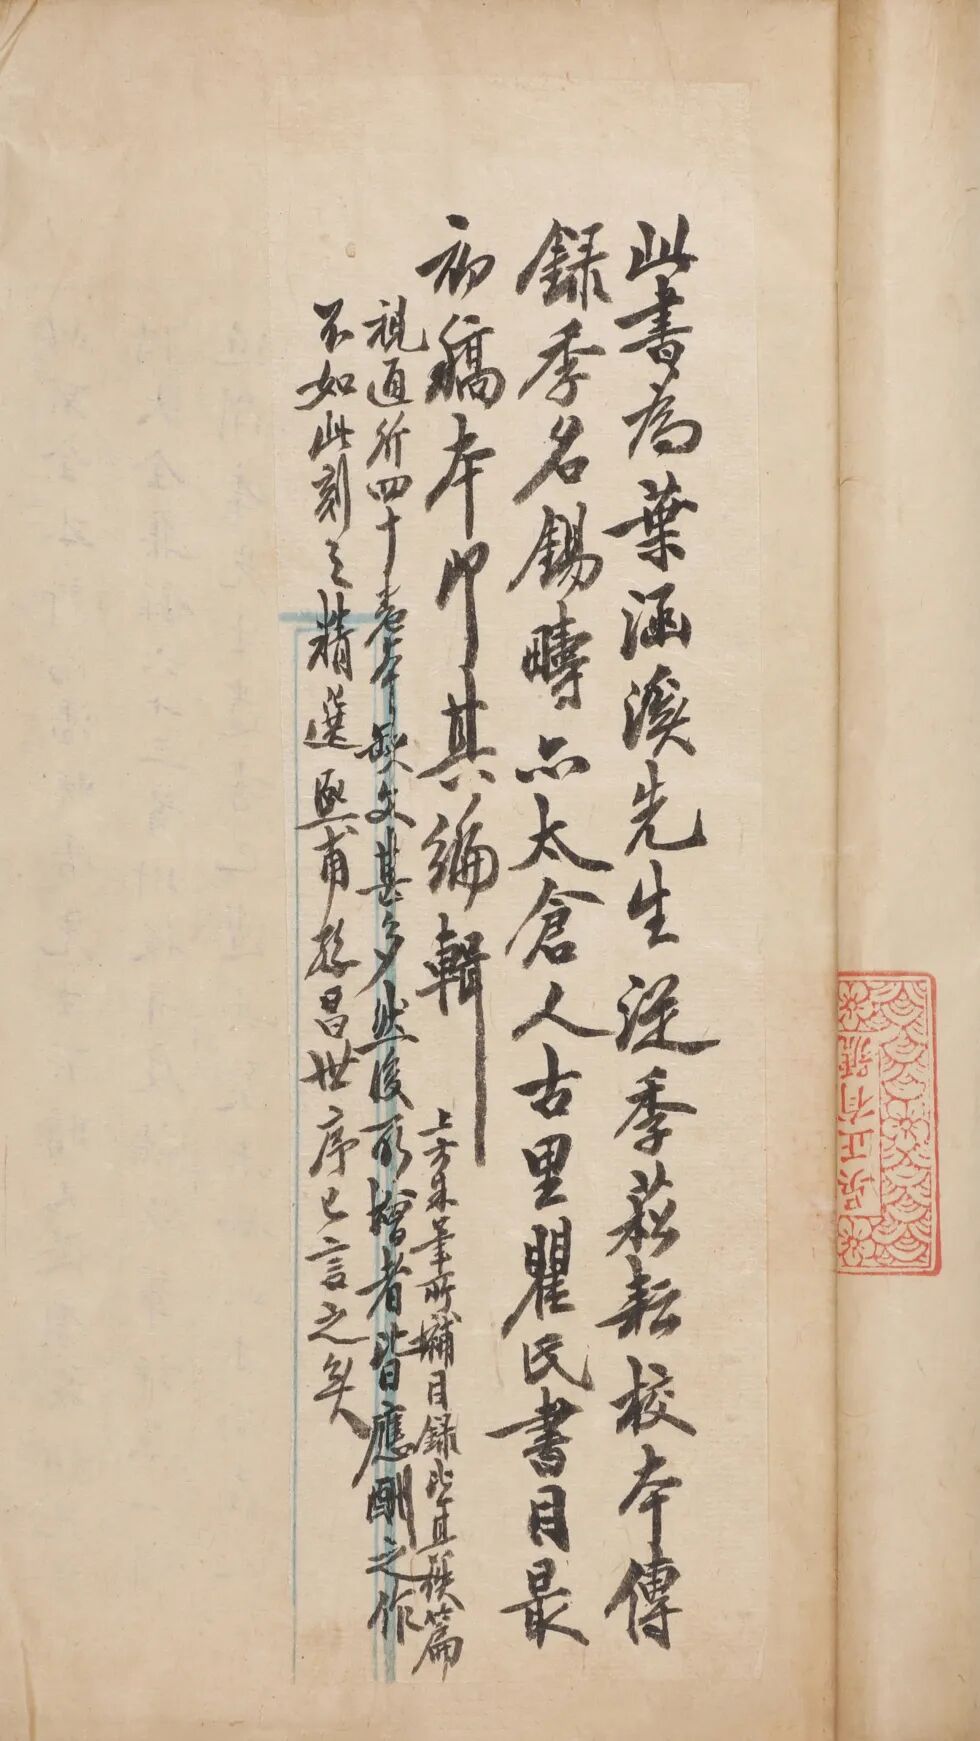 此書為葉涵溪先生從季菘耘校本傳
録季名錫疇亦太倉人古里瞿氏書目最
初稿本即其編輯
上方朱筆所補目録皆其佚篇
視通行四十卷本缺文甚多然後所增者皆應刪之作
不如此刻之精選熙甫孫昌世序已言之矣